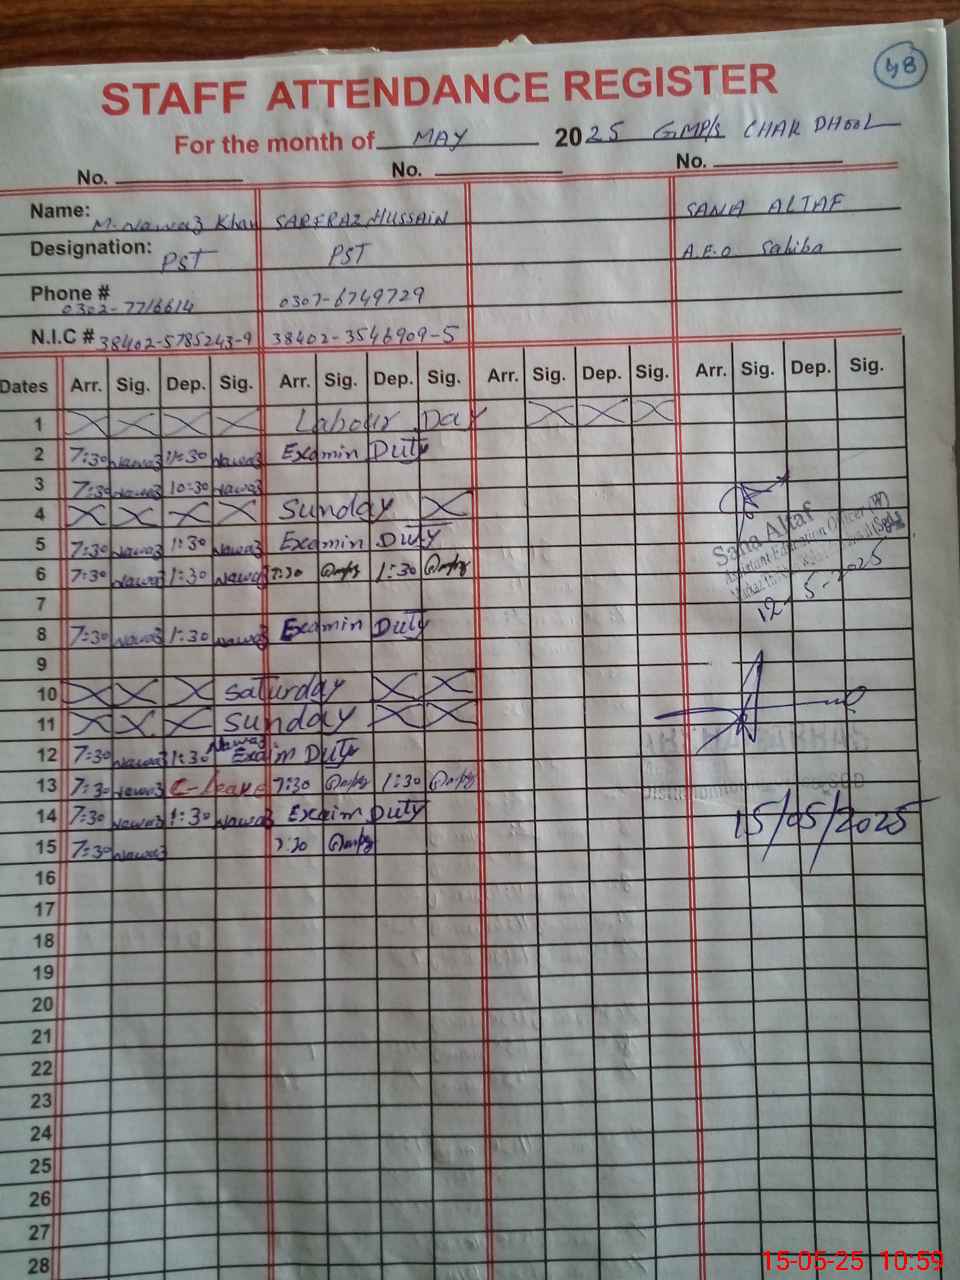 48
STAFF ATTENDANCE REGISTER
For the month of MAY 2025 GMP/s CHAR DHOOL
No. No. No.
Name: M. Nawaz Khan SARFRAZ HUSSAIN SANA ALTAF
Designation: PST PST A.E.O Sahiba
Phone # 0302-7716614 0307-6749729
N.I.C # 38402-5785243-9 38402-3546909-5
Dates Arr. Sig. Dep. Sig. Arr. Sig. Dep. Sig. Arr. Sig. Dep. Sig. Arr. Sig. Dep. Sig.
1 Labour Day
2 7:30 Nawaz 11:30 Nawaz Examin Duty
3 7:30 Nawaz 10:30 Nawaz
4 Sunday
5 7:30 Nawaz 1:30 Nawaz Examin Duty
Sana Altaf
Assistant Education Officer
6 7:30 Nawaz 1:30 Nawaz 7:30 1:30
12-5-2025
7
8 7:30 Nawaz 1:30 Nawaz Examin Duty
9
10 Saturday
11 Sunday
12 7:30 Nawaz 1:30 Nawaz Exaim Duty
13 7:30 Nawaz C-Leave 7:30 1:30
14 7:30 Nawaz 1:30 Nawaz Exaim Duty
15/05/2025
15 7:30 Nawaz 7:30
16
17
18
19
20
21
22
23
24
25
26
27
28
15-05-25 10:59